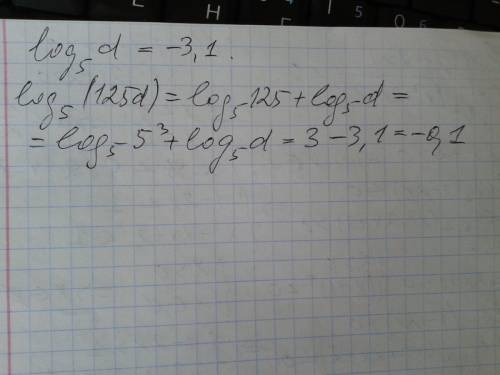 log₅ d = -3,1.
log₅ (125d) = log₅ 125 + log₅ d =
= log₅ 5³ + log₅ d = 3 - 3,1 = -0,1